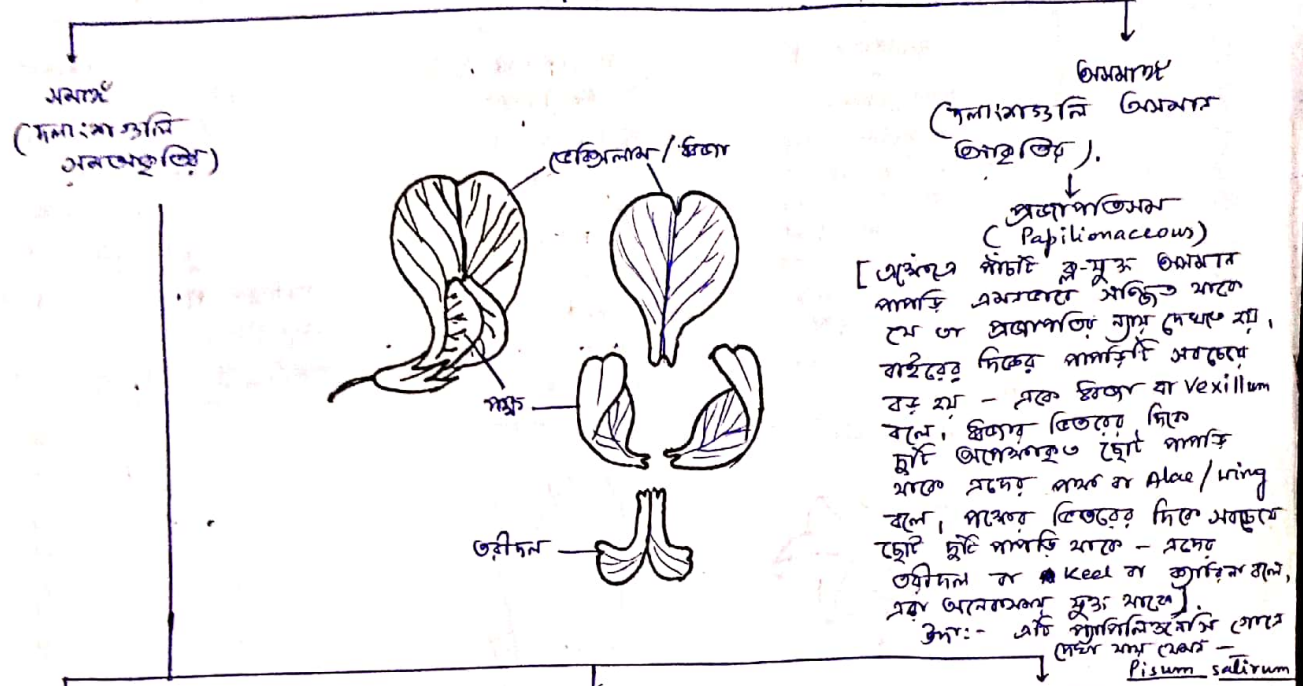 সমাঙ্গ
(দলাংশগুলি
সমআকৃতির)
ভেক্সিলাম / ধ্বজা
পক্ষ
তরীদল
অসমাঙ্গ
(দলাংশগুলি অসমান
আকৃতির).
প্রজাপতিসম
(Papilionaceous)
[এক্ষেত্রে পাঁচটি ক্ল-যুক্ত অসমান
পাপড়ি এমনভাবে সজ্জিত থাকে
যে তা প্রজাপতির ন্যায় দেখতে হয়,
বাইরের দিকের পাপড়িটি সবচেয়ে
বড় হয় - একে ধ্বজা বা Vexillum
বলে, ধ্বজার ভিতরের দিকে
দুটি অপেক্ষাকৃত ছোট পাপড়ি
থাকে এদের পক্ষ বা Alae/wing
বলে, পক্ষের ভিতরের দিকে সবচেয়ে
ছোট দুটি পাপড়ি থাকে - এদের
তরীদল বা Keel বা ক্যারিনা বলে,
এরা অনেকসময় যুক্ত থাকে].
উদা:- এটি প্যাপিলিওনেসি গোত্রে
দেখা যায় যেমন -
Pisum satirum